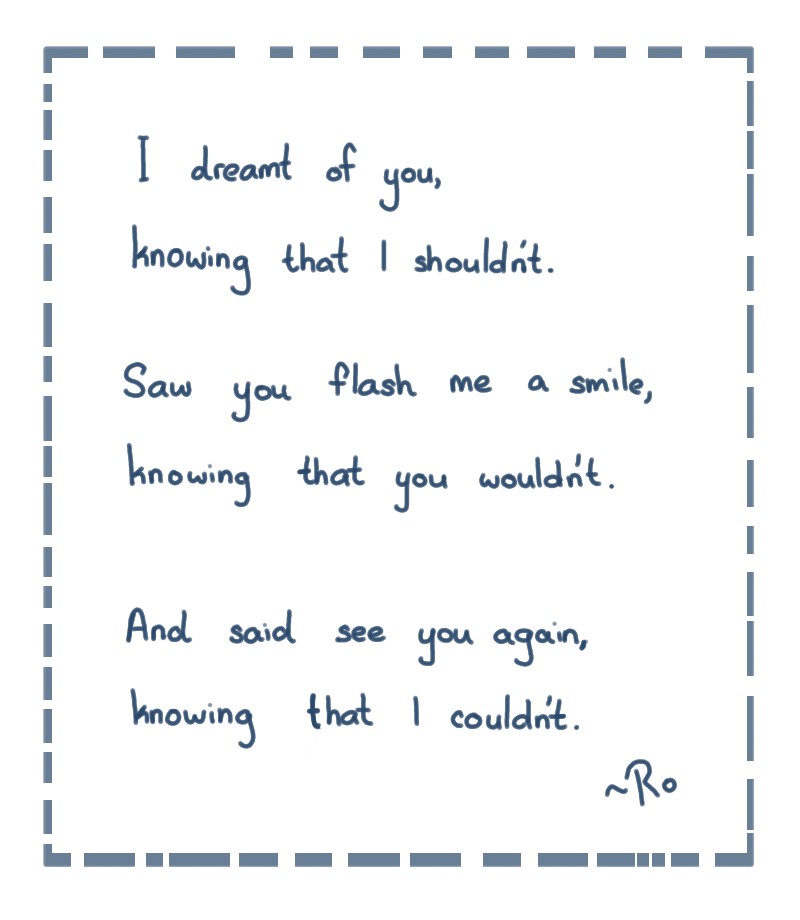 I dreamt of you,
knowing that I shouldn't.
Saw you flash me a smile,
knowing that you wouldn't.
And said see you again,
knowing that I couldn't.
~Ro